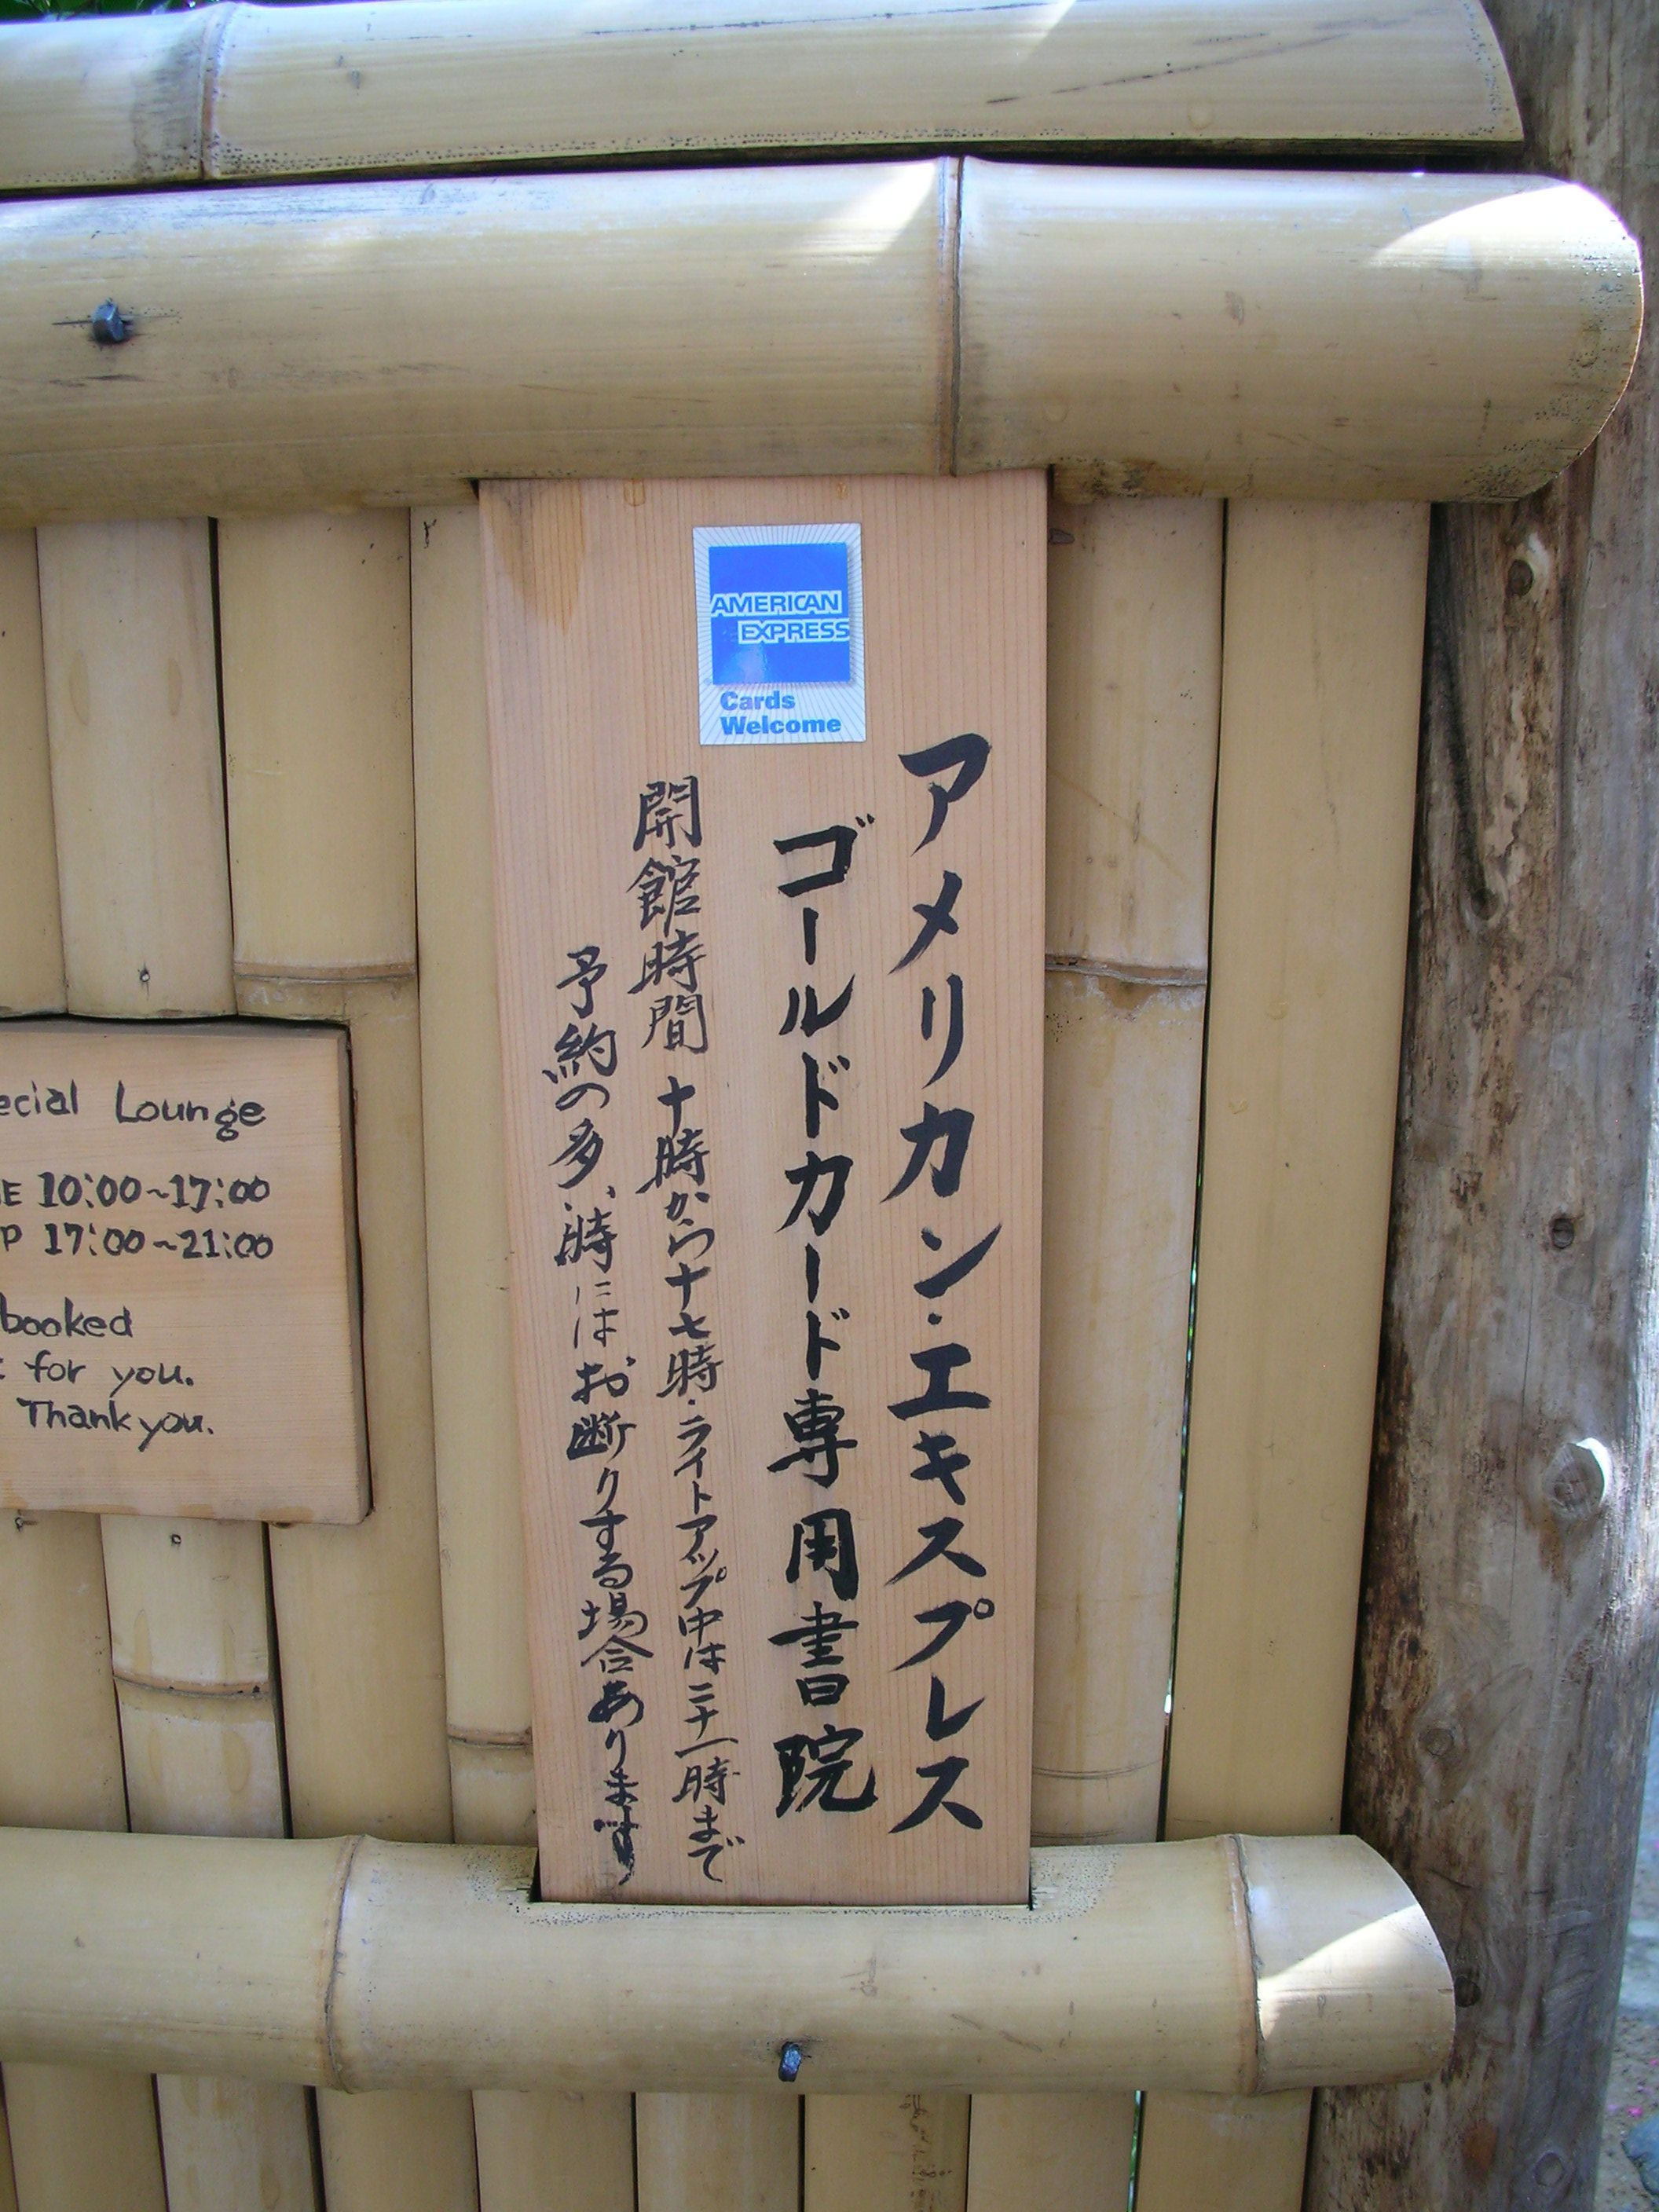 AMERICAN
EXPRESS
Cards
Welcome
アメリカン・エキスプレス
ゴールドカード専用書院
開館時間 十時から十七時・ライトアップ中は二十一時まで
予約の多い時にはお断りする場合あります
ecial Lounge
E 10:00~17:00
P 17:00~21:00
booked
for you.
Thank you.